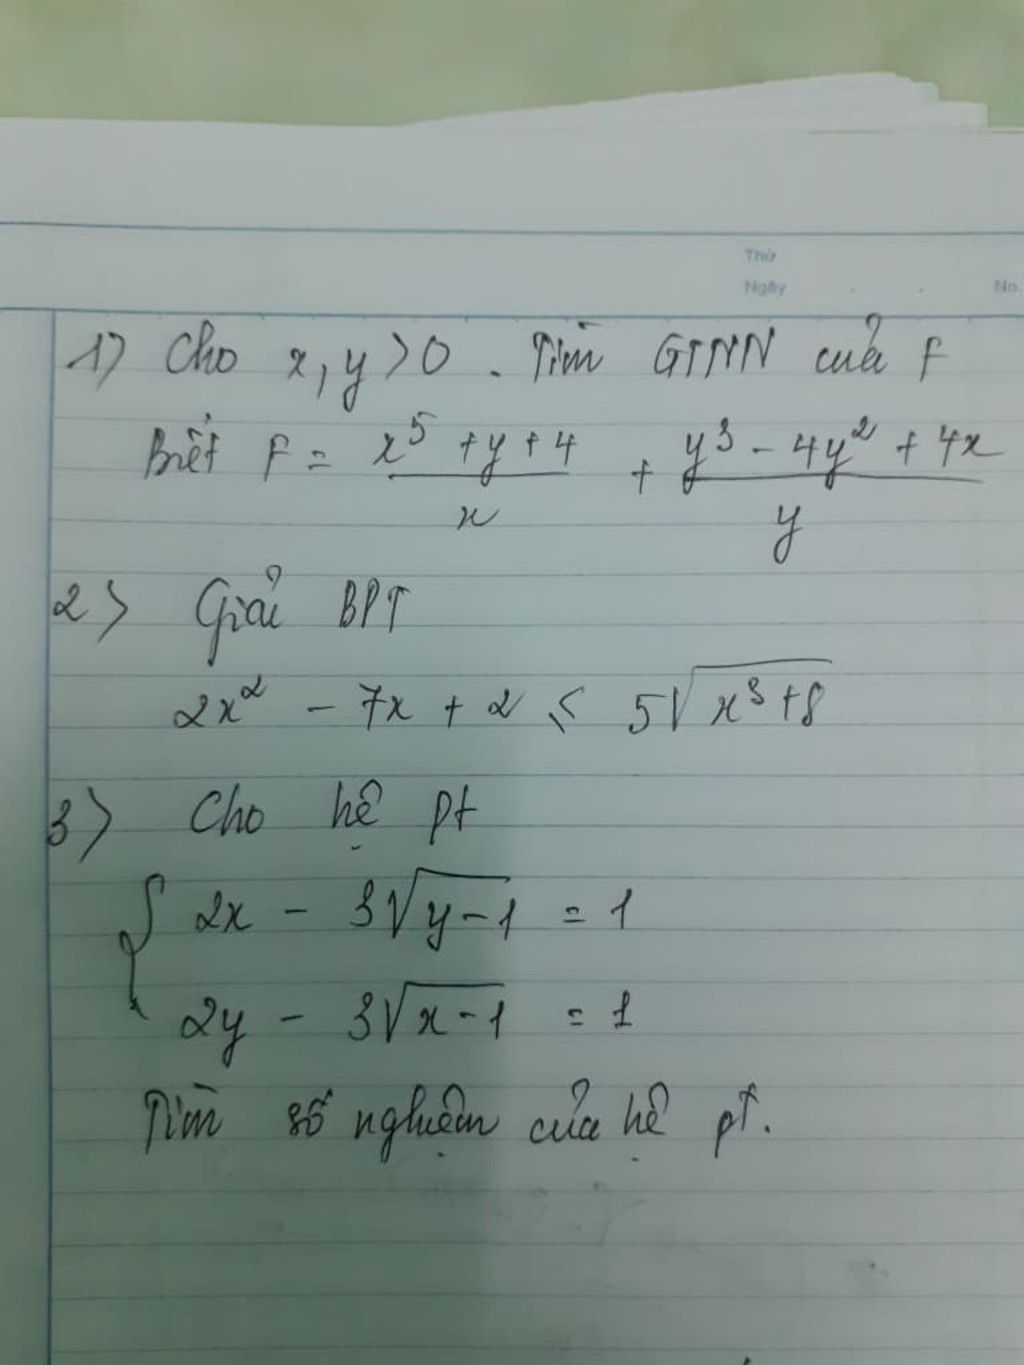 Thứ
Ngày . . No.
1) Cho x, y > 0 . Tìm GTNN của F
Biết F = \frac{x^5 + y + 4}{x} + \frac{y^3 - 4y^2 + 4x}{y}
2) Giải BPT
2x^2 - 7x + 2 ≤ 5\sqrt{x^3 + 8}
3) Cho hệ pt
{ 2x - 3\sqrt{y - 1} = 1
2y - 3\sqrt{x - 1} = 1
Tìm số nghiệm của hệ pt.